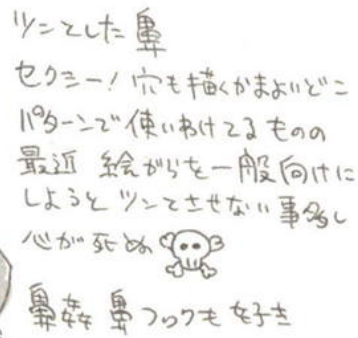 ツンとした鼻
セクシー！穴も描くかまよいどこ
パターンで使いわけてるものの
最近 絵がらを一般向けに
しようと ツンとさせない事多し
心が死ぬ
鼻姦 鼻フックも好き